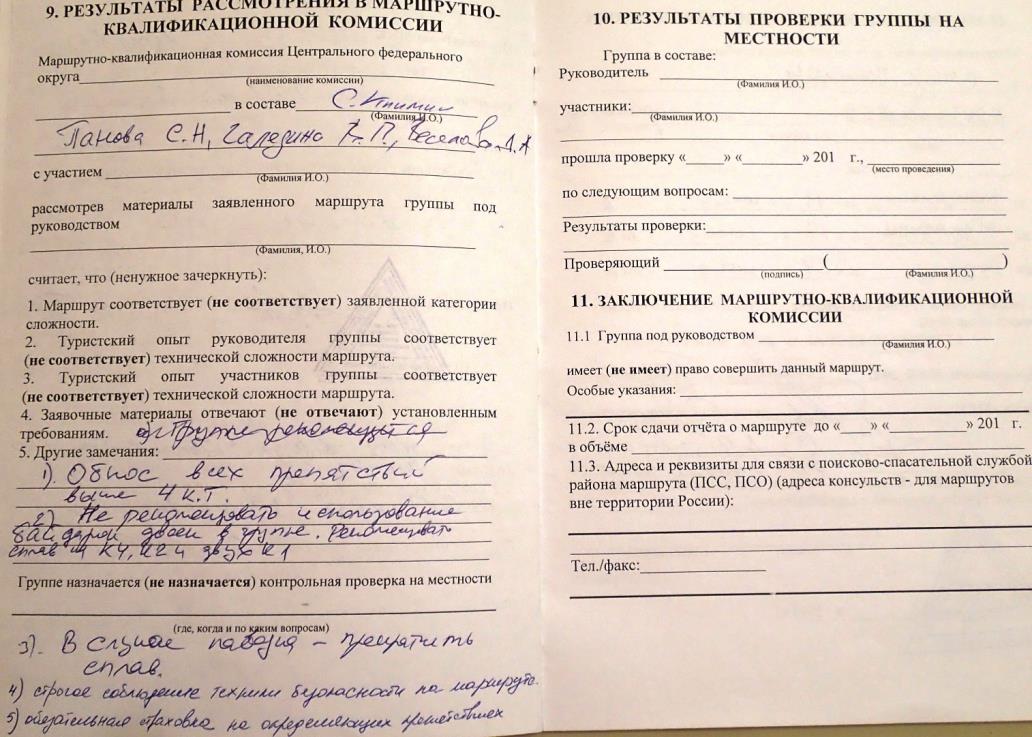 9. РЕЗУЛЬТАТЫ РАССМОТРЕНИЯ В МАРШРУТНО-
КВАЛИФИКАЦИОННОЙ КОМИССИИ
Маршрутно-квалификационная комиссия Центрального федерального
округа
(наименование комиссии)
в составе
(Фамилия И.О.)
Панова С.Н,
с участием
(Фамилия И.О.)
рассмотрев материалы заявленного маршрута группы под
руководством
(Фамилия, И.О.)
считает, что (ненужное зачеркнуть):
1. Маршрут соответствует (не соответствует) заявленной категории
сложности.
2. Туристский опыт руководителя группы соответствует
(не соответствует) технической сложности маршрута.
3. Туристский опыт участников группы соответствует
(не соответствует) технической сложности маршрута.
4. Заявочные материалы отвечают (не отвечают) установленным
требованиям.
5. Другие замечания:
1). Обнос всех препятствий
выше 4 к.т.
2) Не рекомендовать использование
байдарой двоек в группе. Рекомендовать
сплав на К4, К2 и двух К1
Группе назначается (не назначается) контрольная проверка на местности
(где, когда и по каким вопросам)
3). В случае паводка – прекратить
сплав.
4) строгое соблюдение техники безопасности на маршруте.
5) обязательная страховка на определяющих препятствиях
10. РЕЗУЛЬТАТЫ ПРОВЕРКИ ГРУППЫ НА
МЕСТНОСТИ
Группа в составе:
Руководитель
(Фамилия И.О.)
участники:
(Фамилия И.О.)
прошла проверку «_____» «________» 201 г.,
(место проведения)
по следующим вопросам:
Результаты проверки:
Проверяющий ( )
(подпись) (Фамилия И.О.)
11. ЗАКЛЮЧЕНИЕ МАРШРУТНО-КВАЛИФИКАЦИОННОЙ
КОМИССИИ
11.1 Группа под руководством
(Фамилия И.О.)
имеет (не имеет) право совершить данный маршрут.
Особые указания:
11.2. Срок сдачи отчёта о маршруте до «____» «__________» 201 г.
в объёме
11.3. Адреса и реквизиты для связи с поисково-спасательной службой
района маршрута (ПСС, ПСО) (адреса консульств - для маршрутов
вне территории России):
Тел./факс: